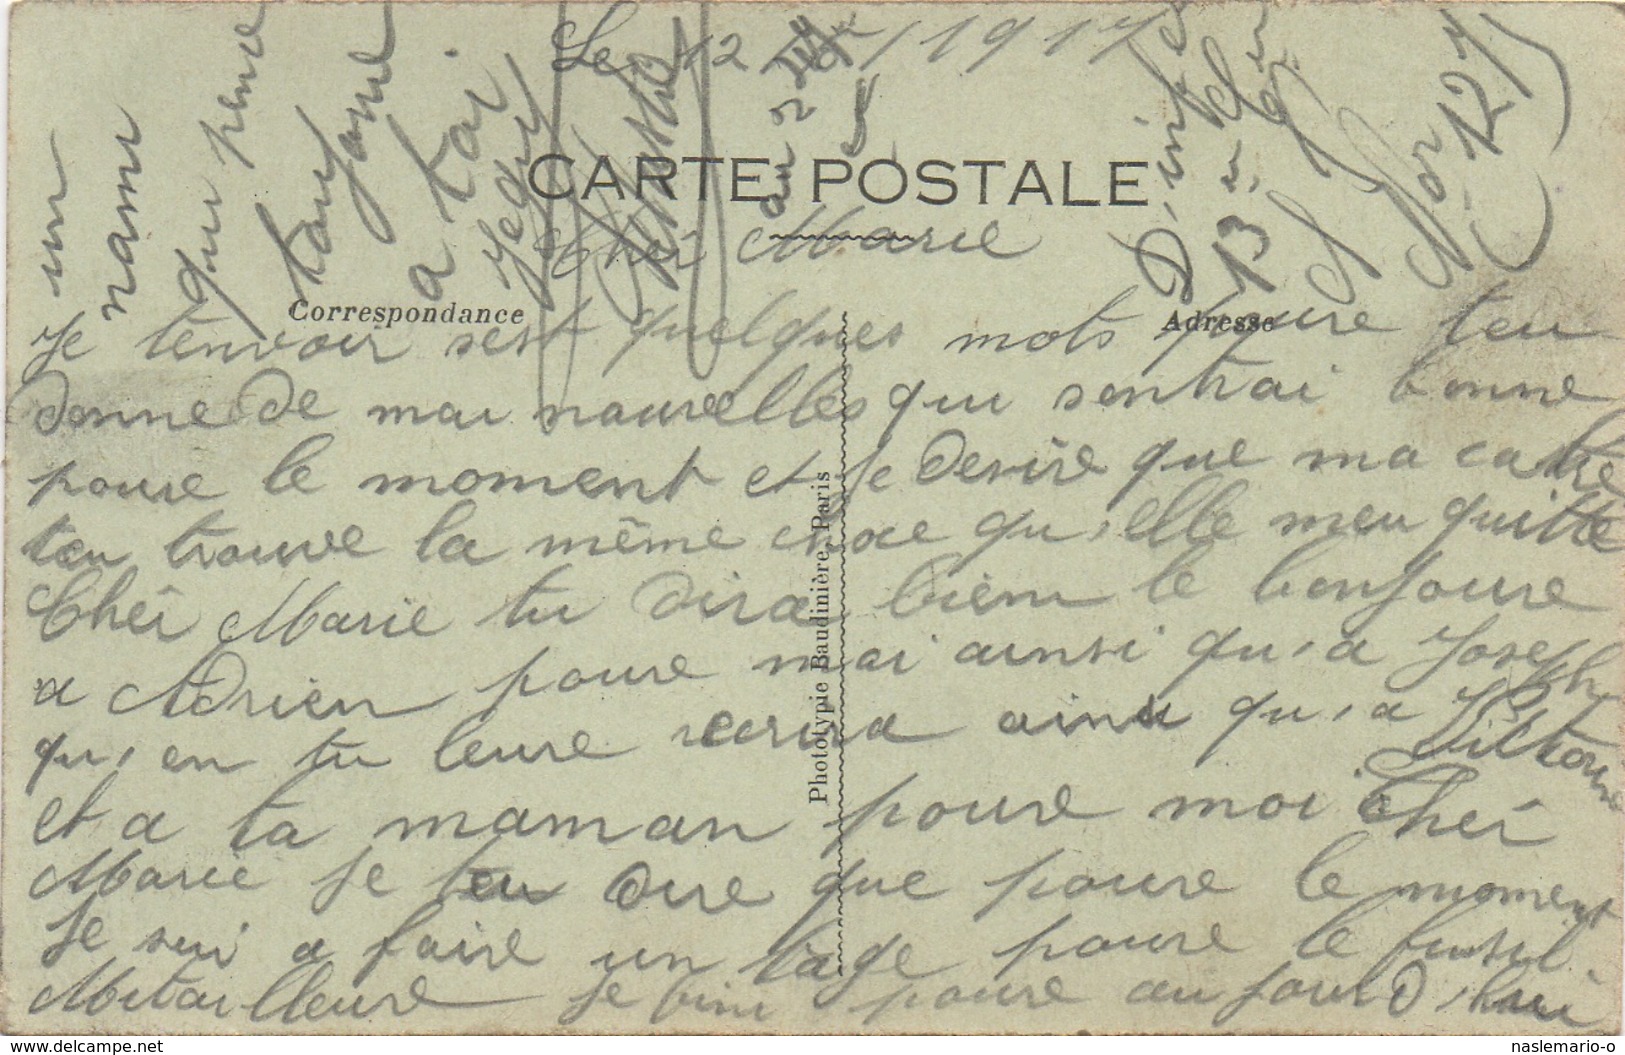 Le 12 / 1917
CARTE POSTALE
Cheì Marie
Correspondance
Adresse
Je tenvoir sest quelques mots poure teu
donne de mai nouvelles qui sontrai bonne
poure le moment et Je desire que ma catre
teu trouve la même choe qu'elle meu quitte
Cheì Marie tu dira bien le bonjoure
a Adrien poure moi ainsi qu'a Joseph
qu'en tu leure recrira ainsi qu'a Vicktorine
et a ta maman poure moi Cheì
Marie Je teu dire que poure le moment
Je sui a faire un tage poure le fusil.
Mitailleure Je fini poure aujourd'hui
un
nami
qui pense
toujoure
a toi
D'infanterie
13
Phototypie Baudinière, Paris
https://www.delcampe.net
naslemario-o